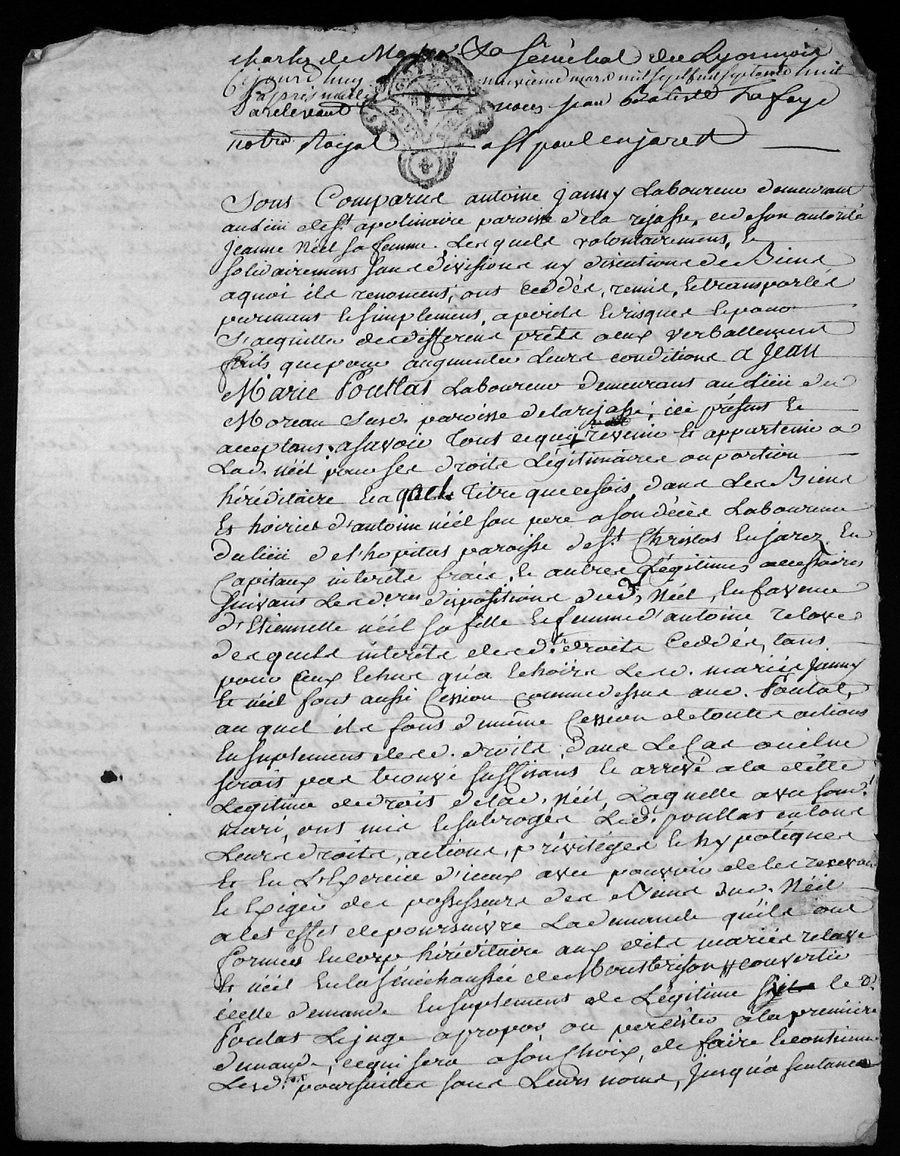 Charles de Sénéchal du Lyonnois
Cejourdhuy neuvieme mars mil sept cent septante huit
apres midi
Pardevant nous Jean Baptiste Lafaye
notre Royal a St paul en jaret
Sont Comparus antoine Janny Laboureur demeurant
au lieu de St apolinaire paroisse de la rejasse, et de son autorité
Jeanne Néel sa femme. Lesquels volontairement, et
solidairement sans divisions ny discutions de Biens
a quoi ils renoncent, ont ceddés, remis, et transportés
purement et simplement, a perte et risques et pour
S'acquitter de differens prêts a eux verballement
faits que pour augmenter leurs conditions a Jean
Marie Poullas Laboureur demeurant au lieu du
Moreau susd. paroisse de la rejasse, ici présent et
acceptant, a savoir tout ce qui revenir et appartenir a
Lad. Néel pour ses droits Légitimaires ou portion
héréditaire en quel titre que ce soit, dans Les Biens
et hoiries d'antoine néel son pere a son décès Laboureur
du lieu de l'hopital paroisse de St. Christos en jarez, En
Capitaux interets frais, et autres Légitimes accessoires
suivant Les dres. dispositions dud. Néel, en faveur
d'Etiennette néel sa fille et femme d'antoine relave
desquels interets desd. droits ceddés, tant
pour ceux echus qu'a echoirs Lesd. mariés Janny
et néel font aussi cession comme dessus aud. Poulat,
auquel ils font de même cession de toutes actions
en suplement desd. droits, dans Le Cas ou il ne
serait pas trouvé suffisant et arrivé a la dette
Legitime et droits de lad. Néel, Laquelle avec sond.
mari, ont mis et subrogés Led. poullas en tous
Leurs droits, actions, privilèges et hypoteques
et en L'Exercice d'iceux avec pouvoir de les recevoir
et exiger des possesseurs des Biens dud. Néel
a les effet de poursuivre La demande qu'ils ont
formés en corps héréditaire aux dits mariés relave
et néel en la sénéchaussée de Montbrison convertir
icelle demande en suplement de Légitime le d.
Poulat Le juge a propos ou persister a la premiere
demande, ce qui sera a son choix, de faire et continuer
Lesd. poursuites sous Leurs noms, jusqu'a sentence